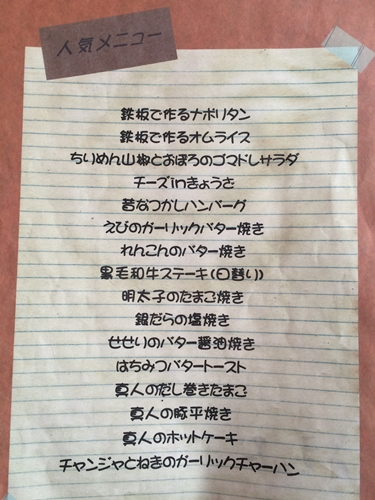 人気メニュー
鉄板で作るナポリタン
鉄板で作るオムライス
ちりめん山椒とおぼろのゴマドレサラダ
チーズinぎょうざ
昔なつかしハンバーグ
えびのガーリックバター焼き
れんこんのバター焼き
黒毛和牛ステーキ(日替り)
明太子のたまご焼き
銀だらの塩焼き
せせりのバター醤油焼き
はちみつバタートースト
真人のだし巻きたまご
真人の豚平焼き
真人のホットケーキ
チャンジャとねぎのガーリックチャーハン